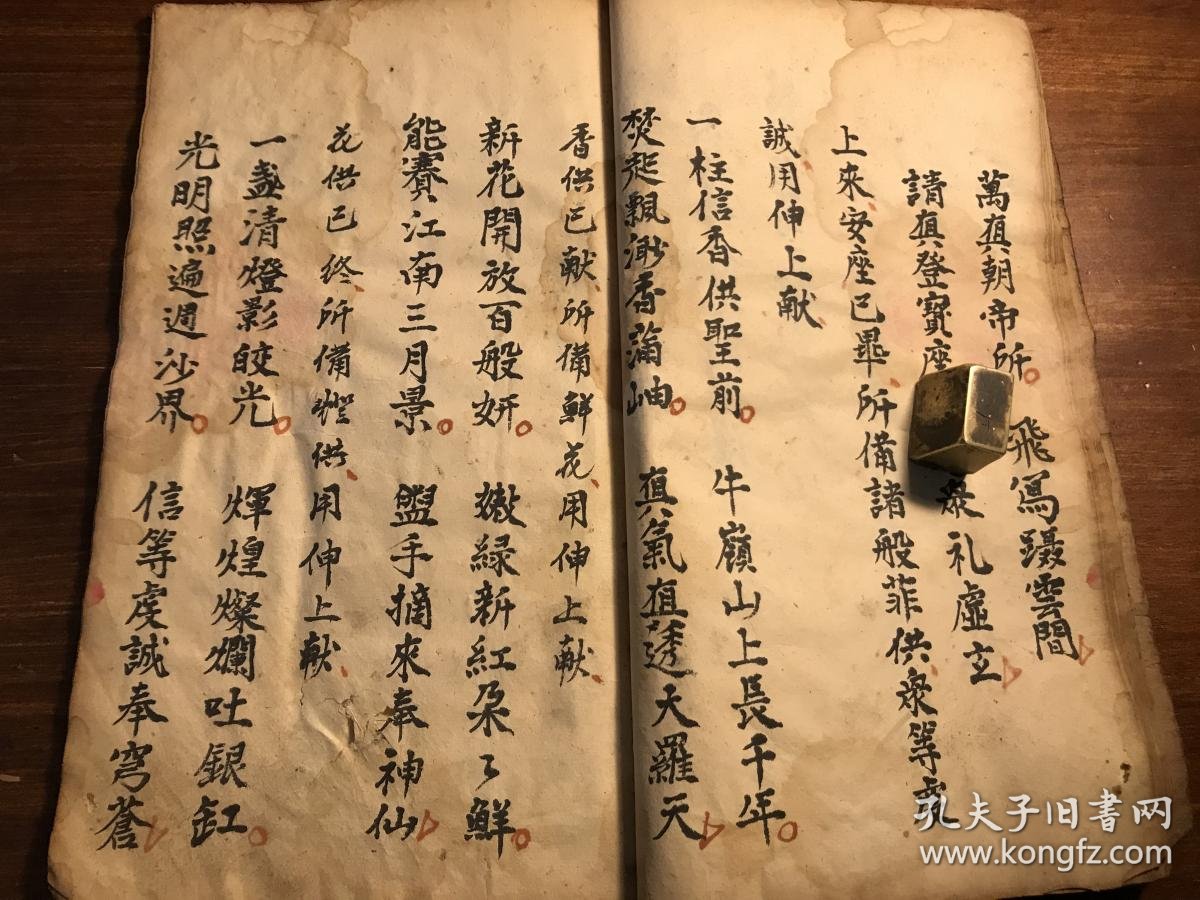 萬真朝帝所 飛舄躡雲間
請真登寶座 衆礼虛玄
上來安座已畢所備諸般菲供衆等虔
誠用伸上献
一柱信香供聖前 牛嶺山上長千年
焚起飄渺香滿岫 真氣直透大羅天
香供已献所備鮮花用伸上献
新花開放百般妍 嫩緑新紅朶々鮮
能賽江南三月景 盥手摘來奉神仙
花供已終所備燈供用伸上献
一盞清燈影皎光 輝煌燦爛吐銀缸
光明照遍週沙界 信等虔誠奉穹蒼
孔夫子旧書网
www.kongfz.com